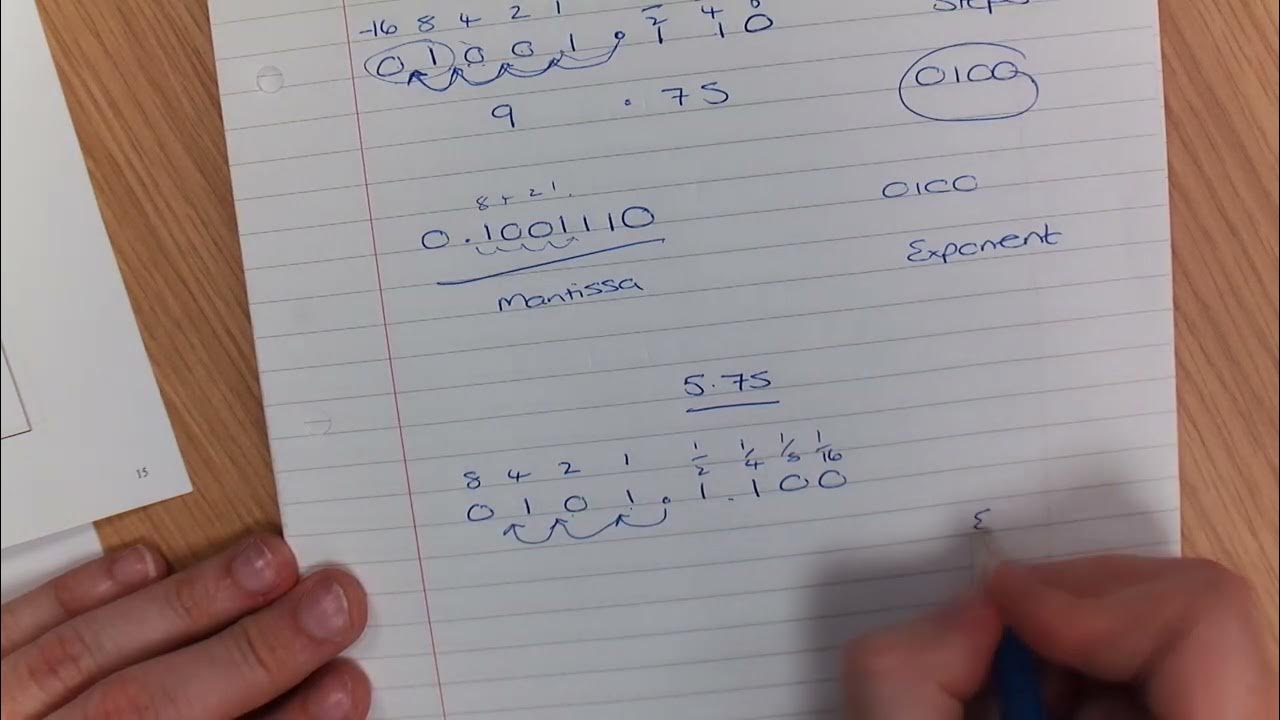 -16 8 4 2 1 2 4 8
Steps
0 1 0 0 1 . 1 1 0
0100
9 . 75
8 4 2 1
0100
0.1001110
Exponent
Mantissa
5.75
8 4 2 1 1/2 1/4 1/8 1/16
0 1 0 1 . 1 . 1 0 0
15